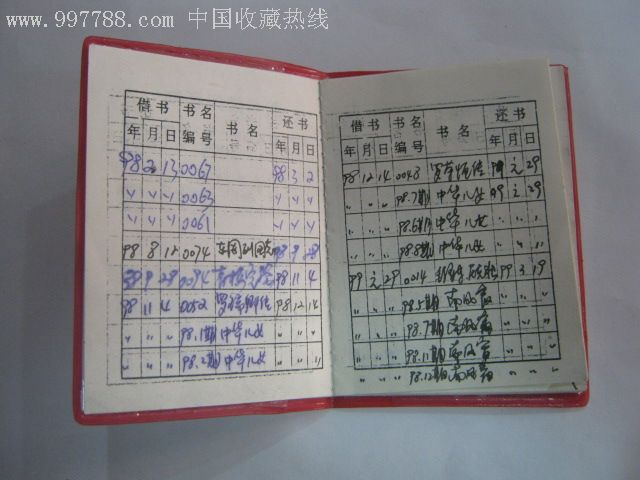 www.997788.com 中国收藏热线
借书 书名编号 书名 还书
年 月 日 年 月 日
98 2 13 0067 98 3 2
〃 〃 〃 0063 〃 〃 〃
〃 〃 〃 0061 〃 〃 〃
98 8 12 0074 98 9 28
98 9 28 0094 98 11 4
98 11 4 0052 98 12 14
〃 〃 〃 98.1期 中华儿女 〃 〃 〃
〃 〃 〃 98.2期 中华儿女 〃 〃 〃
借书 书名编号 书名 还书
年 月 日 年 月 日
98 12 14 0048 99 元 29
〃 〃 〃 98.7期 中华儿女 99 元 29
〃 〃 〃 98.6期 中华儿女 〃 〃 〃
〃 〃 〃 98.8期 中华儿女 〃 〃 〃
99 元 29 0014 99 3 19
〃 〃 〃 98.5期 〃 〃 〃
〃 〃 〃 98.7期 〃 〃 〃
〃 〃 〃 98.11期 〃 〃 〃
〃 〃 〃 98.12期 〃 〃 〃